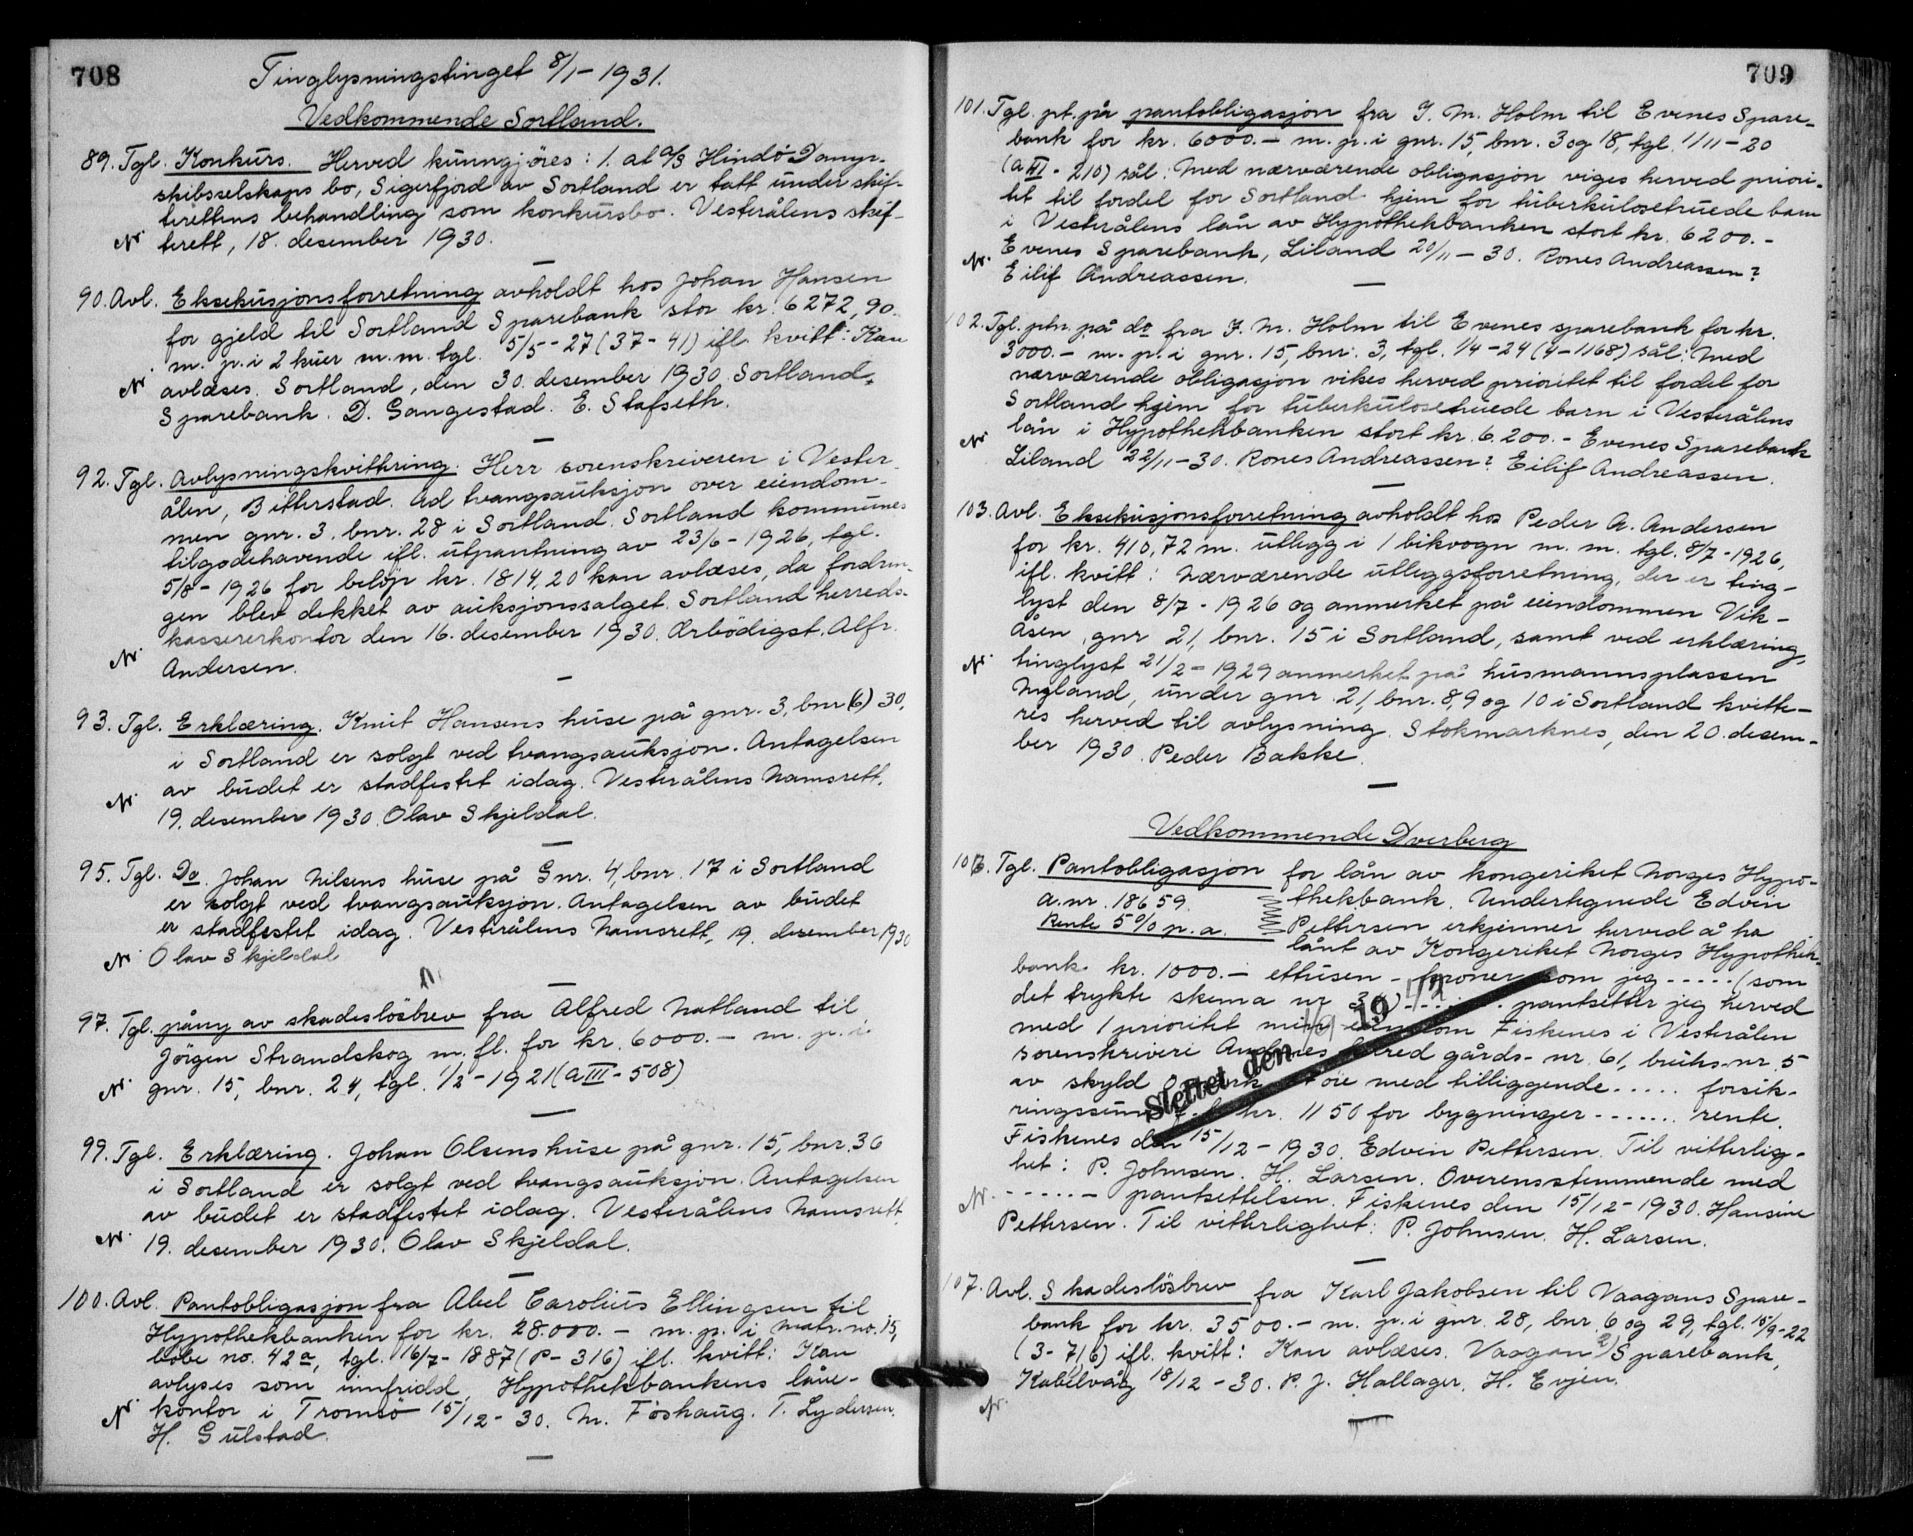 708
Tinglysningstinget 8/1-1931.
Vedkommende Sortland.
89. Tgl. Konkurs. Herved kunngjöres: 1. at A/S Hindö Damp-
skibsselskaps bo, Sigerfjord av Sortland er tatt under skif-
terettens behandling som konkursbo. Vesterålens skif-
terett, 18. desember 1930.
90. Avl. Eksekusjonsforretning avholdt hos Johan Hansen
for gjeld til Sortland Sparebank stor kr. 6272,90
m. p. i 2 kuer m.m. tgl. 5/5-27 (37-41) ifl. kvitt: Kan
avlæses. Sortland, den 30. desember 1930. Sortland
Sparebank. D. Gangestad. E. Stafseth.
92. Tgl. Avlysningskvittering. Herr sorenskriveren i Vester-
ålen, Bitterstad. Ad tvangsauksjon over eiendom-
men gnr. 3. bnr. 28 i Sortland. Sortland kommunes
tilgodehavende ifl. utpantning av 23/6-1926, tgl.
5/8-1926 for belöp kr. 1814,20 kan avlæses, da fordrin-
gen blev dekket av auksjonssalget. Sortland herreds-
kassererkontor den 16. desember 1930. Ærbödigst. Alfr.
Andersen.
93. Tgl. Erklæring. Knut Hansens huse på gnr. 3, bnr (6) 30,
i Sortland er solgt ved tvangsauksjon. Antagelsen
av budet er stadfestet idag. Vesterålens Namsrett,
19. desember 1930. Olav Skjeldal.
95. Tgl. Do. Johan Nilsens huse på Gnr. 4, bnr. 17 i Sortland
er solgt ved tvangsauksjon. Antagelsen av budet
er stadfestet idag. Vesterålens Namsrett, 19. desember 1930
Olav Skjeldal
97. Tgl. påny av skadeslösbrev fra Alfred Natland til
Jörgen Strandskog m. fl. for kr. 6000.- m. p. i
gnr. 15, bnr. 24, tgl. 1/2-1921 (A III-508)
99. Tgl. Erklæring. Johan Olsens huse på gnr. 15, bnr. 36
i Sortland er solgt ved tvangsauksjon. Antagelsen
av budet er stadfestet idag. Vesterålens Namsrett
19. desember 1930. Olav Skjeldal.
100. Avl. Pantobligasjon fra Abel Carolius Ellingsen til
Hypothekbanken for kr. 28.000.- m. p. i matr. no. 15,
löbe no. 42a, tgl. 16/7-1887 (P-316) ifl. kvitt: Kan
avlyses som innfridd. Hypothekbankens låne-
kontor i Tromsö 15/12-30. M. Foshaug. T. Lydersen.
H. Gulstad.
709
101. Tgl. pt. på pantobligasjon fra J. M. Holm til Evenes Spare-
bank for kr. 6000.- m. p. i gnr. 15, bnr. 3 og 18, tgl. 1/11-20
(A III-210) sål: Med nærværende obligasjon viges herved priori-
tet til fordel for Sortland hjem for tuberkulosetruede barn
i Vesterålens lån av Hypothekbanken stort kr. 6200.-
Evenes Sparebank, Liland 20/11-30. Rones Andreassen?
Eilif Andreassen.
102. Tgl. ptn. på do fra J. M. Holm til Evenes sparebank for kr.
3000.- m. p. i gnr. 15, bnr. 3, tgl. 1/4-24 (4-1168) sål: Med
nærværende obligasjon vikes herved prioritet til fordel for
Sortland hjem for tuberkulosetruede barn i Vesterålens
lån i Hypothekbanken stort kr. 6.200.- Evenes Sparebank
Liland 22/11-30. Rones Andreassen? Eilif Andreassen.
103. Avl. Eksekusjonsforretning avholdt hos Peder A. Andersen
for kr. 410,72 m. utlegg i 1 bikvogn m. m. tgl. 8/7-1926,
ifl. kvitt: Nærværende utleggsforretning, der er ting-
lyst den 8/7-1926 og anmerket på eiendommen Vik-
åsen, gnr 21, bnr. 15 i Sortland, samt ved erklæring,
tinglyst 21/2-1929 anmerket på husmannsplassen
Nyland, under gnr. 21, bnr. 8,9 og 10 i Sortland kvitte-
res herved til avlysning. Stokmarknes, den 20. desem-
ber 1930. Peder Bakke.
Vedkommende Dverberg
106. Tgl. Pantobligasjon for lån av kongeriket Norges Hypo-
a. nr. 18659. thekbank. Undertegnede Edvin
Rente 5 % p. a. Pettersen erkjenner herved å ha
lånt av Kongeriket Norges Hypothek-
bank kr. 1000.- ettusen - kroner som jeg ..... (som
det trykte skema nr 3 a) ...... pantsetter jeg herved
med 1 prioritet min eiendom Fiskenes i Vesterålen
sorenskriveri Andenes herred gårds-nr. 61, bruks-nr. 5
av skyld 0 mark öre med tilliggende ..... forsik-
ringssum kr. 1150 for bygninger ...... rente.
Fiskenes den 15/12-1930. Edvin Pettersen. Til vitterlig-
het: P. Johnsen. H. Larsen. Overensstemmende med
...... - pantsettelsen. Fiskenes den 15/12-1930. Hansine
Pettersen. Til vitterlighet: P. Johnsen. H. Larsen.
Slettet den 19
107. Avl. Skadeslösbrev fra Karl Jakobsen til Vaagans Spare-
bank for kr. 3500.- m. p. i gnr. 28, bnr. 6 og 29, tgl. 15/9-22
(3-716) ifl. kvitt: Kan avlæses. Vaagan Sparebank,
Kabelvåg 18/12-30. P. J. Hallager. H. Evjen.